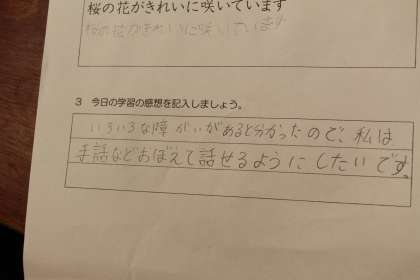 桜の花がきれいに咲いています
桜の花がきれいに咲いています
3 今日の学習の感想を記入しましょう。
いろいろな障がいがあると分かったので、私は
手話などおぼえて話せるようにしたいです。